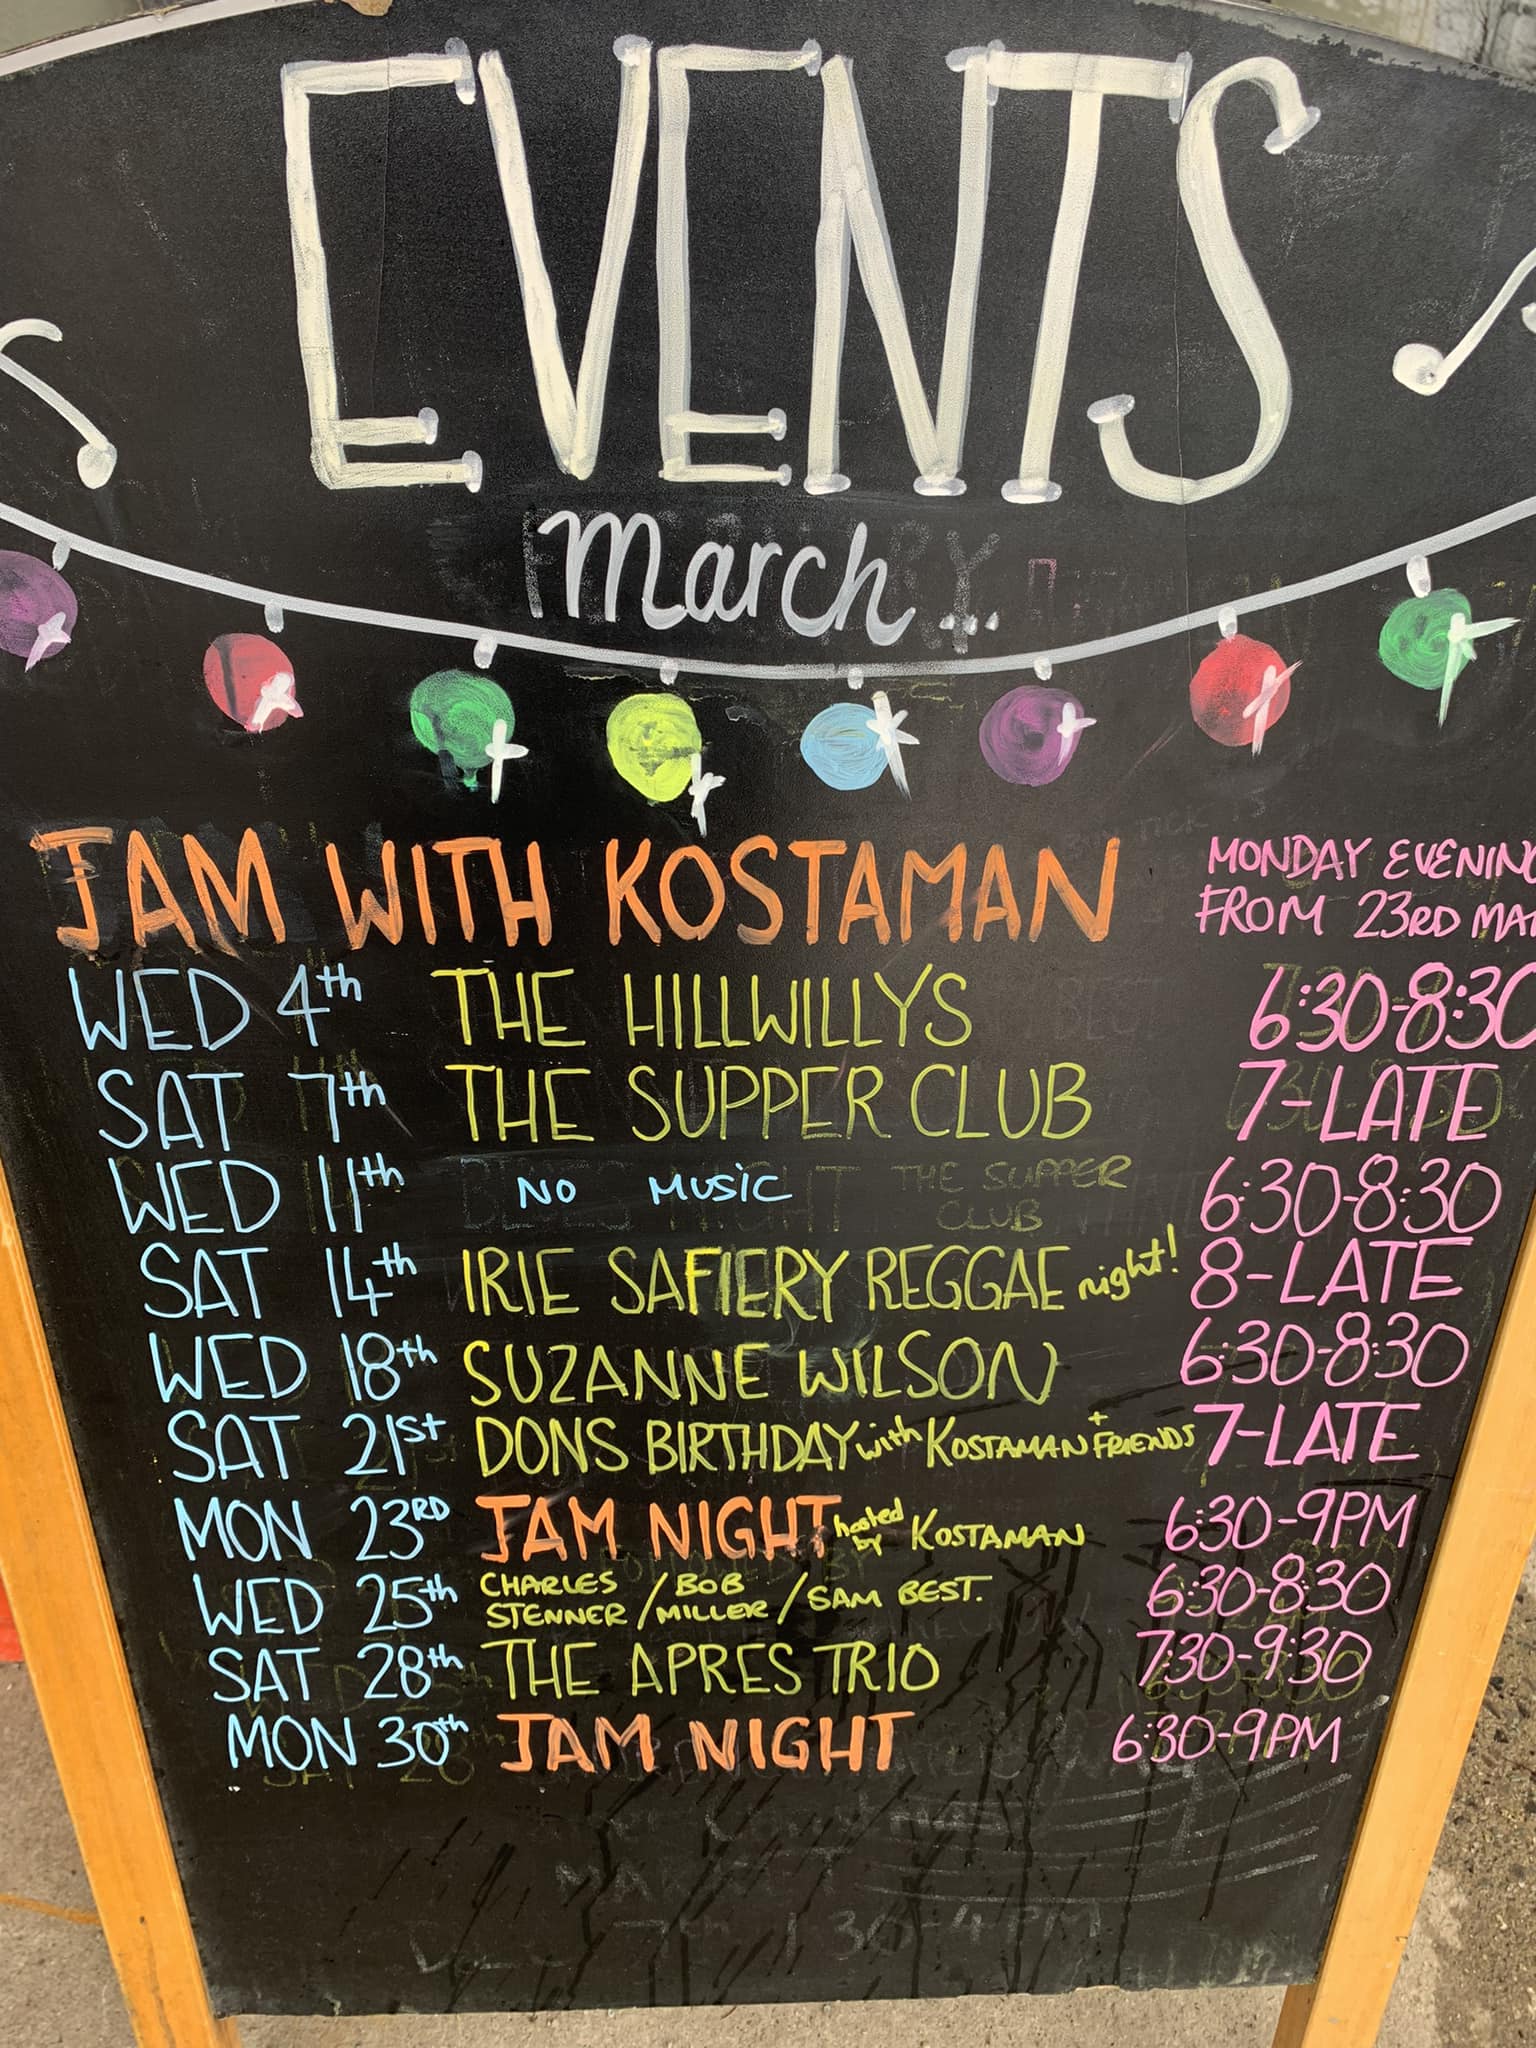 EVENTS
March...
JAM WITH KOSTAMAN MONDAY EVENING
FROM 23RD MA
WED 4th THE HILLWILLYS 6:30-8:30
SAT 7th THE SUPPER CLUB 7-LATE
WED 11th NO MUSIC THE SUPPER CLUB 6:30-8:30
SAT 14th IRIE SAFIERY REGGAE night! 8-LATE
WED 18th SUZANNE WILSON 6:30-8:30
SAT 21st DONS BIRTHDAY with KOSTAMAN + FRIENDS 7-LATE
MON 23RD JAM NIGHT hosted by KOSTAMAN 6:30-9PM
WED 25th CHARLES STENNER / BOB MILLER / SAM BEST. 6:30-8:30
SAT 28th THE APRES TRIO 7:30-9:30
MON 30th JAM NIGHT 6:30-9PM